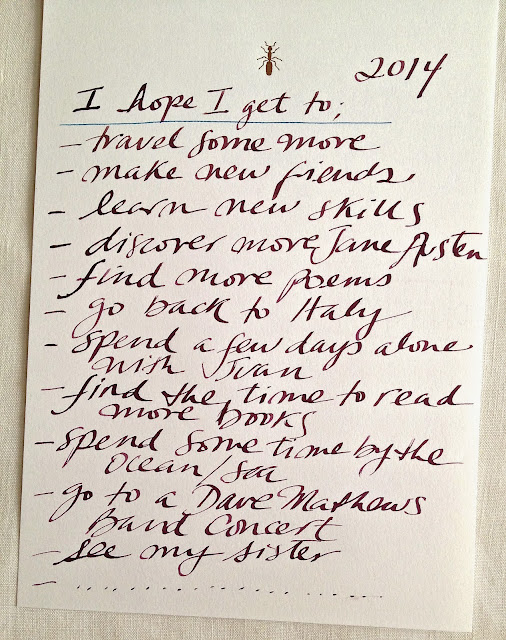 2014
I hope I get to;
- travel some more
- make new fiends
- learn new skills
- discover more Jane Austen
- find more poems
- go back to Italy
- spend a few days alone
with Ivan
- find the time to read
more books
- spend some time by the
ocean/sea
- go to a Dave Mathews
band Concert
- see my sister
- ....................